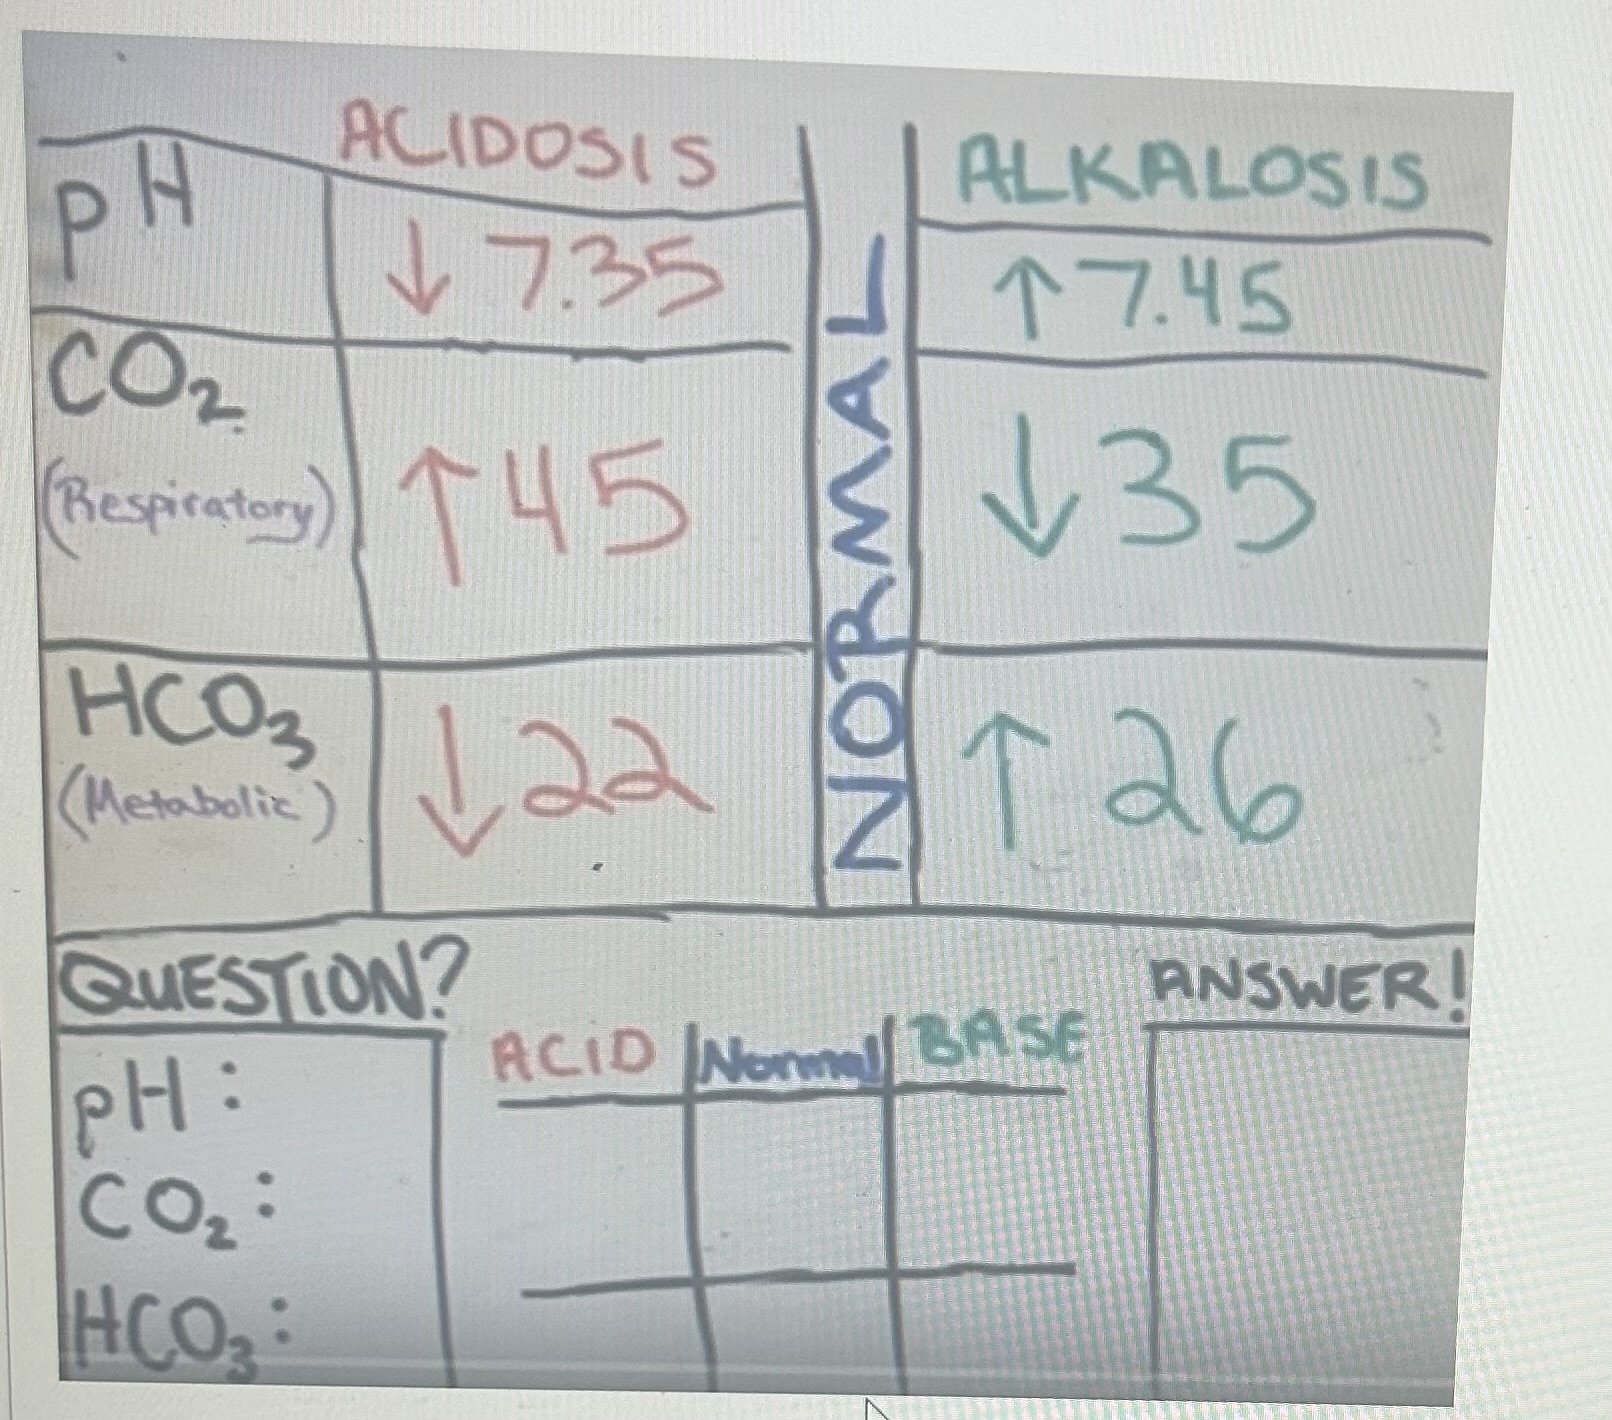 ACIDOSIS
ALKALOSIS
pH
↓ 7.35
↑ 7.45
CO₂
(Respiratory)
↑ 45
↓ 35
HCO₃
(Metabolic)
↓ 22
↑ 26
NORMAL
QUESTION?
ANSWER!
ACID
Normal
BASE
pH:
CO₂:
HCO₃: